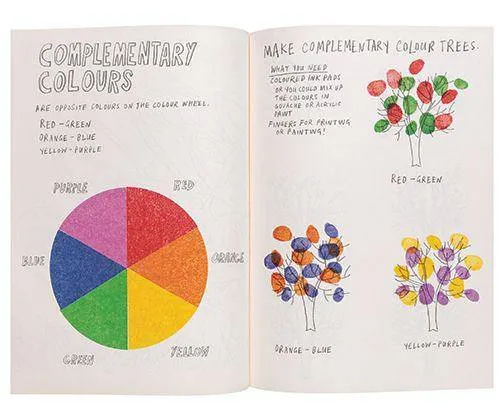 COMPLEMENTARY
COLOURS
ARE OPPOSITE COLOURS ON THE COLOUR WHEEL.
RED-GREEN
ORANGE-BLUE
YELLOW-PURPLE
PURPLE
RED
BLUE
ORANGE
GREEN
YELLOW
MAKE COMPLEMENTARY COLOUR TREES.
WHAT YOU NEED
COLOURED INK PADS
OR YOU COULD MIX UP
THE COLOURS IN
GOUACHE OR ACRYLIC
PAINT
FINGERS FOR PRINTING
OR PAINTING!
RED-GREEN
ORANGE-BLUE
YELLOW-PURPLE